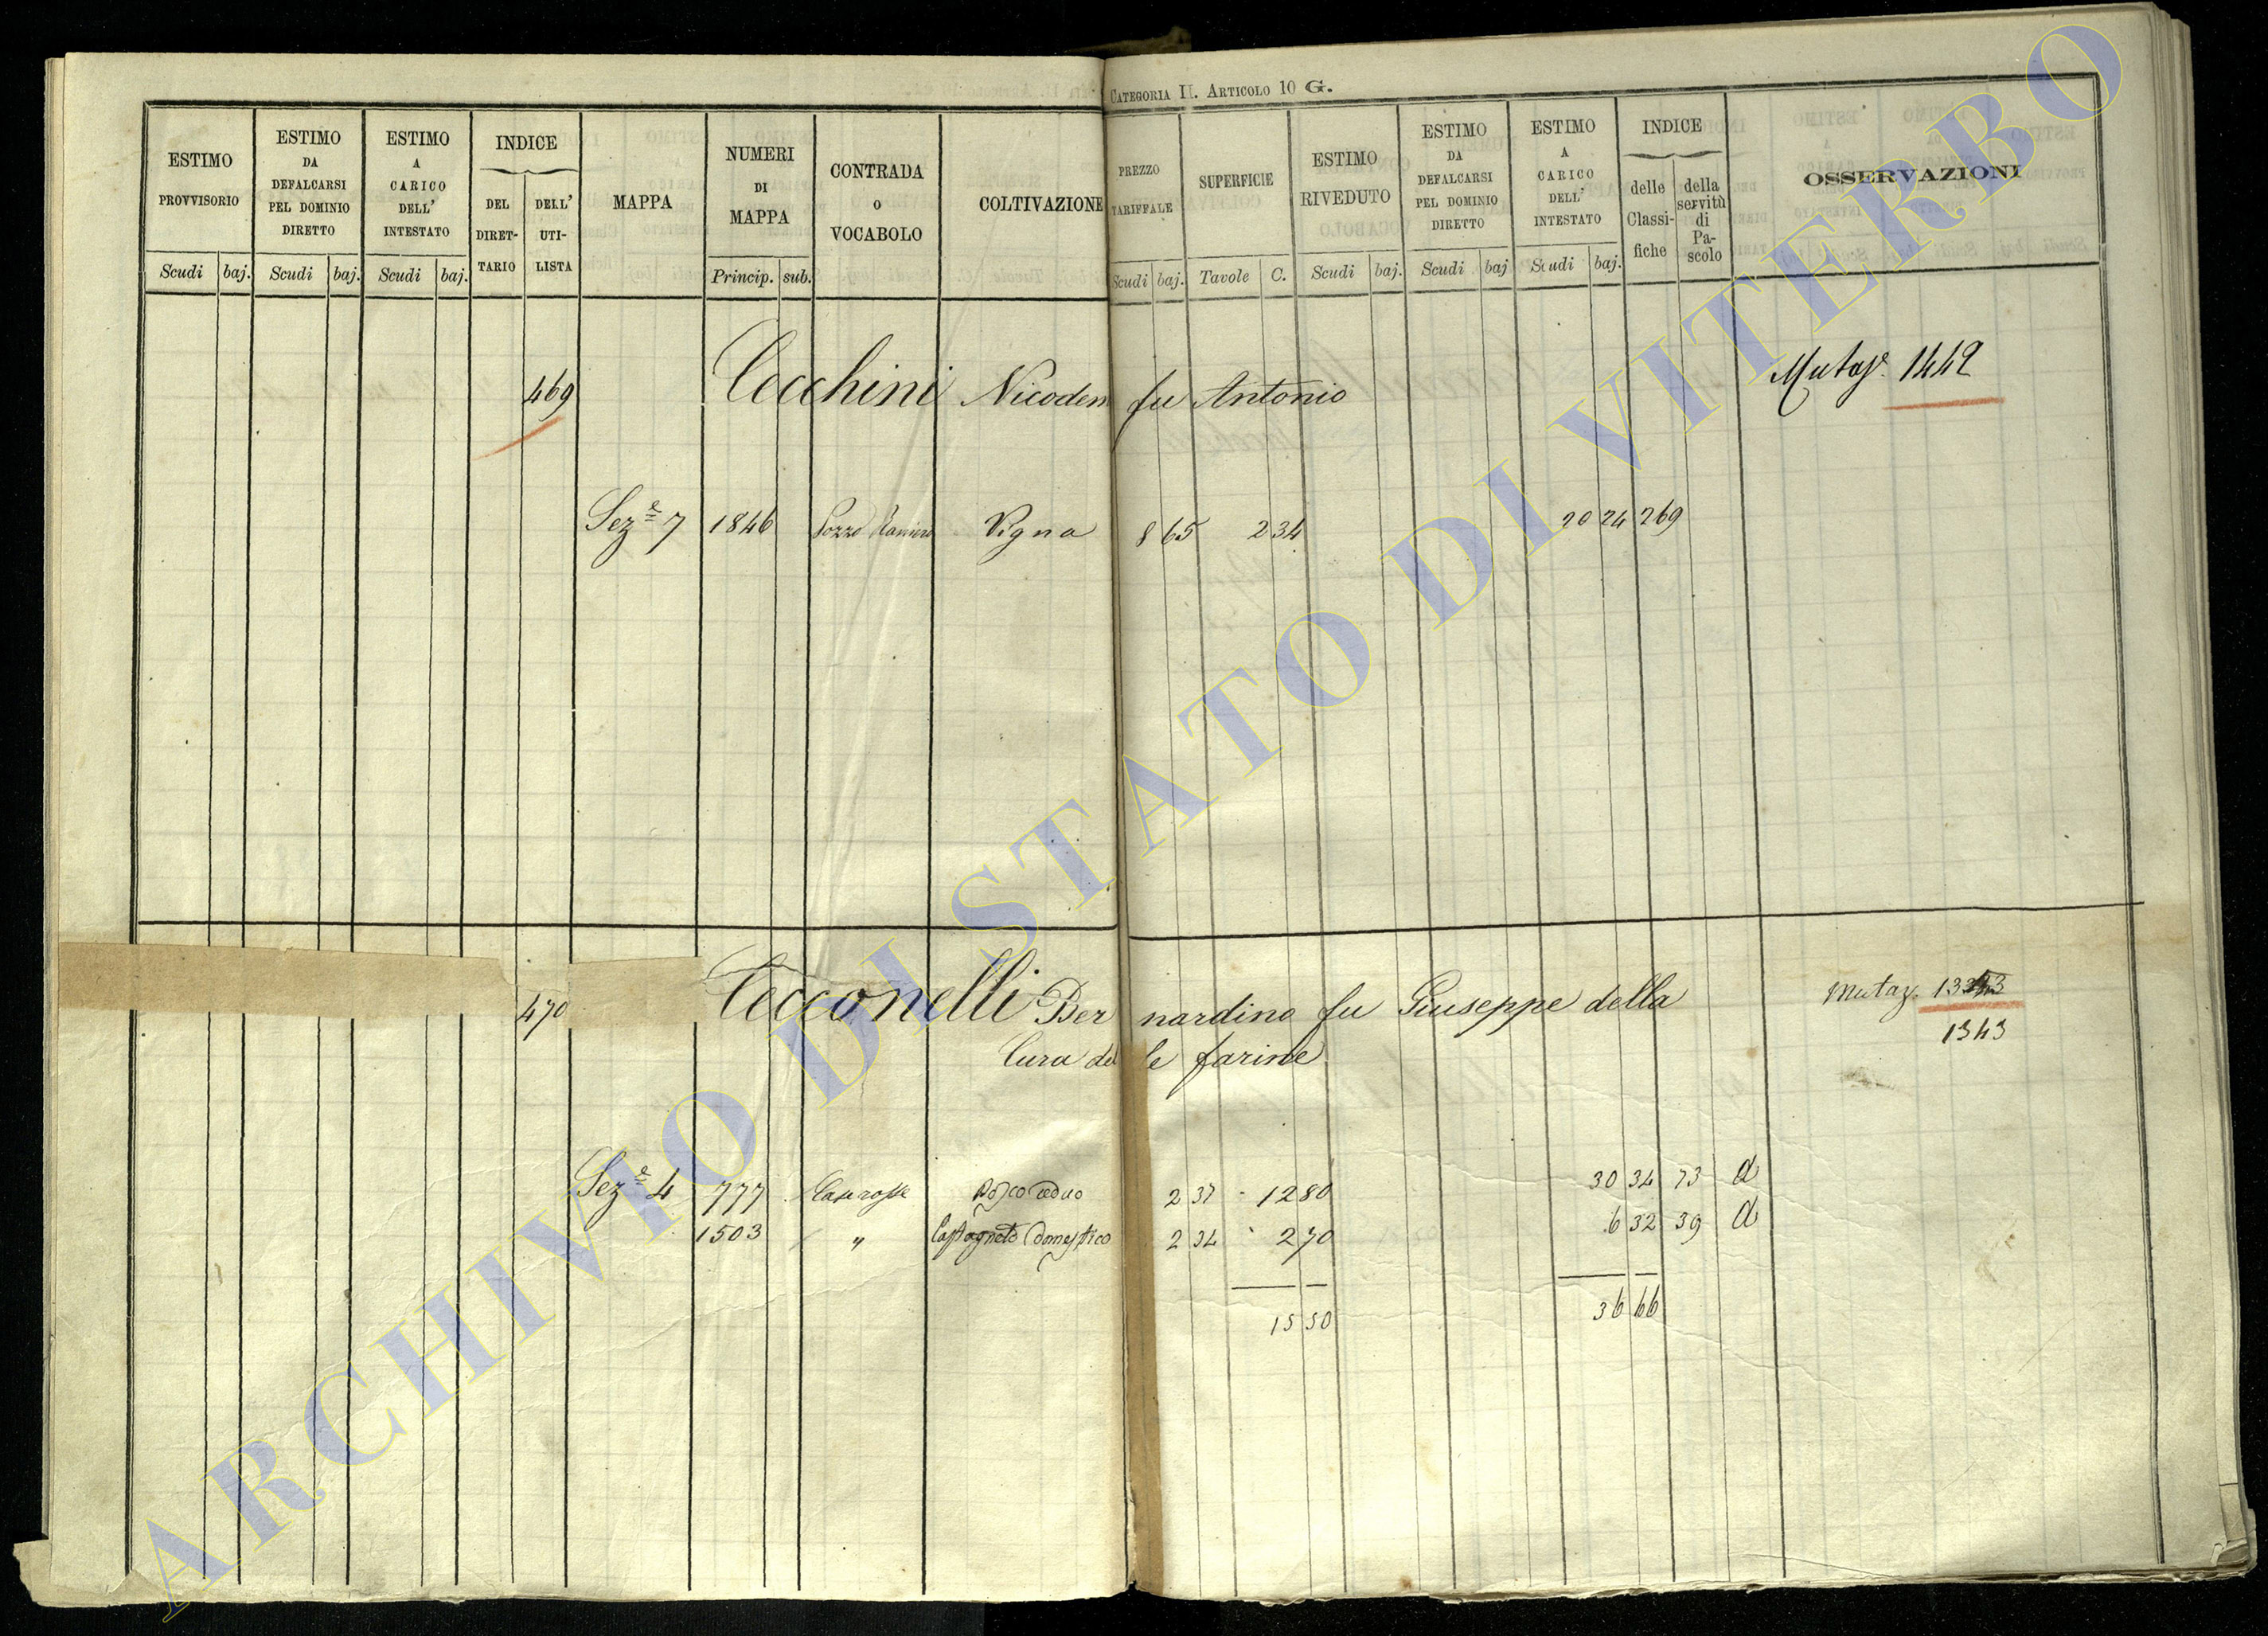 CATEGORIA II. ARTICOLO 10 G.
ESTIMO PROVVISORIO
Scudi baj.
ESTIMO DA DEFALCARSI PEL DOMINIO DIRETTO
Scudi baj.
ESTIMO A CARICO DELL' INTESTATO
Scudi baj.
INDICE
DEL DIRET-TARIO
DELL' UTI-LISTA
MAPPA
NUMERI DI MAPPA
Princip. sub.
CONTRADA O VOCABOLO
COLTIVAZIONE
PREZZO TARIFFALE
Scudi baj.
SUPERFICIE
Tavole C.
ESTIMO RIVEDUTO
Scudi baj.
ESTIMO DA DEFALCARSI PEL DOMINIO DIRETTO
Scudi baj
ESTIMO A CARICO DELL' INTESTATO
Scudi baj.
INDICE
delle Classi-fiche
della servitù di Pa-scolo
OSSERVAZIONI
469 Cecchini Nicodem fu Antonio Mutaz. 1442
Sez.e 7 1846 Pozzo Raniero Vigna 8 65 2 34 20 24 269
470 Cecconelli Bernardino fu Giuseppe della Mutaz.
1343
Cura delle farine
Sez.e 4 777 Case rosse Bosco ceduo 2 37 12 80 30 34 73 a
1503 " Castagneto Domestico 2 34 2 70 6 32 39 a
15 50 36 66
ARCHIVIO DI STATO DI VITERBO